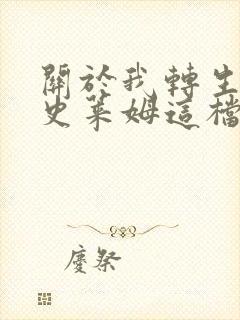 關於我轉生
史萊姆這檔
慶祭